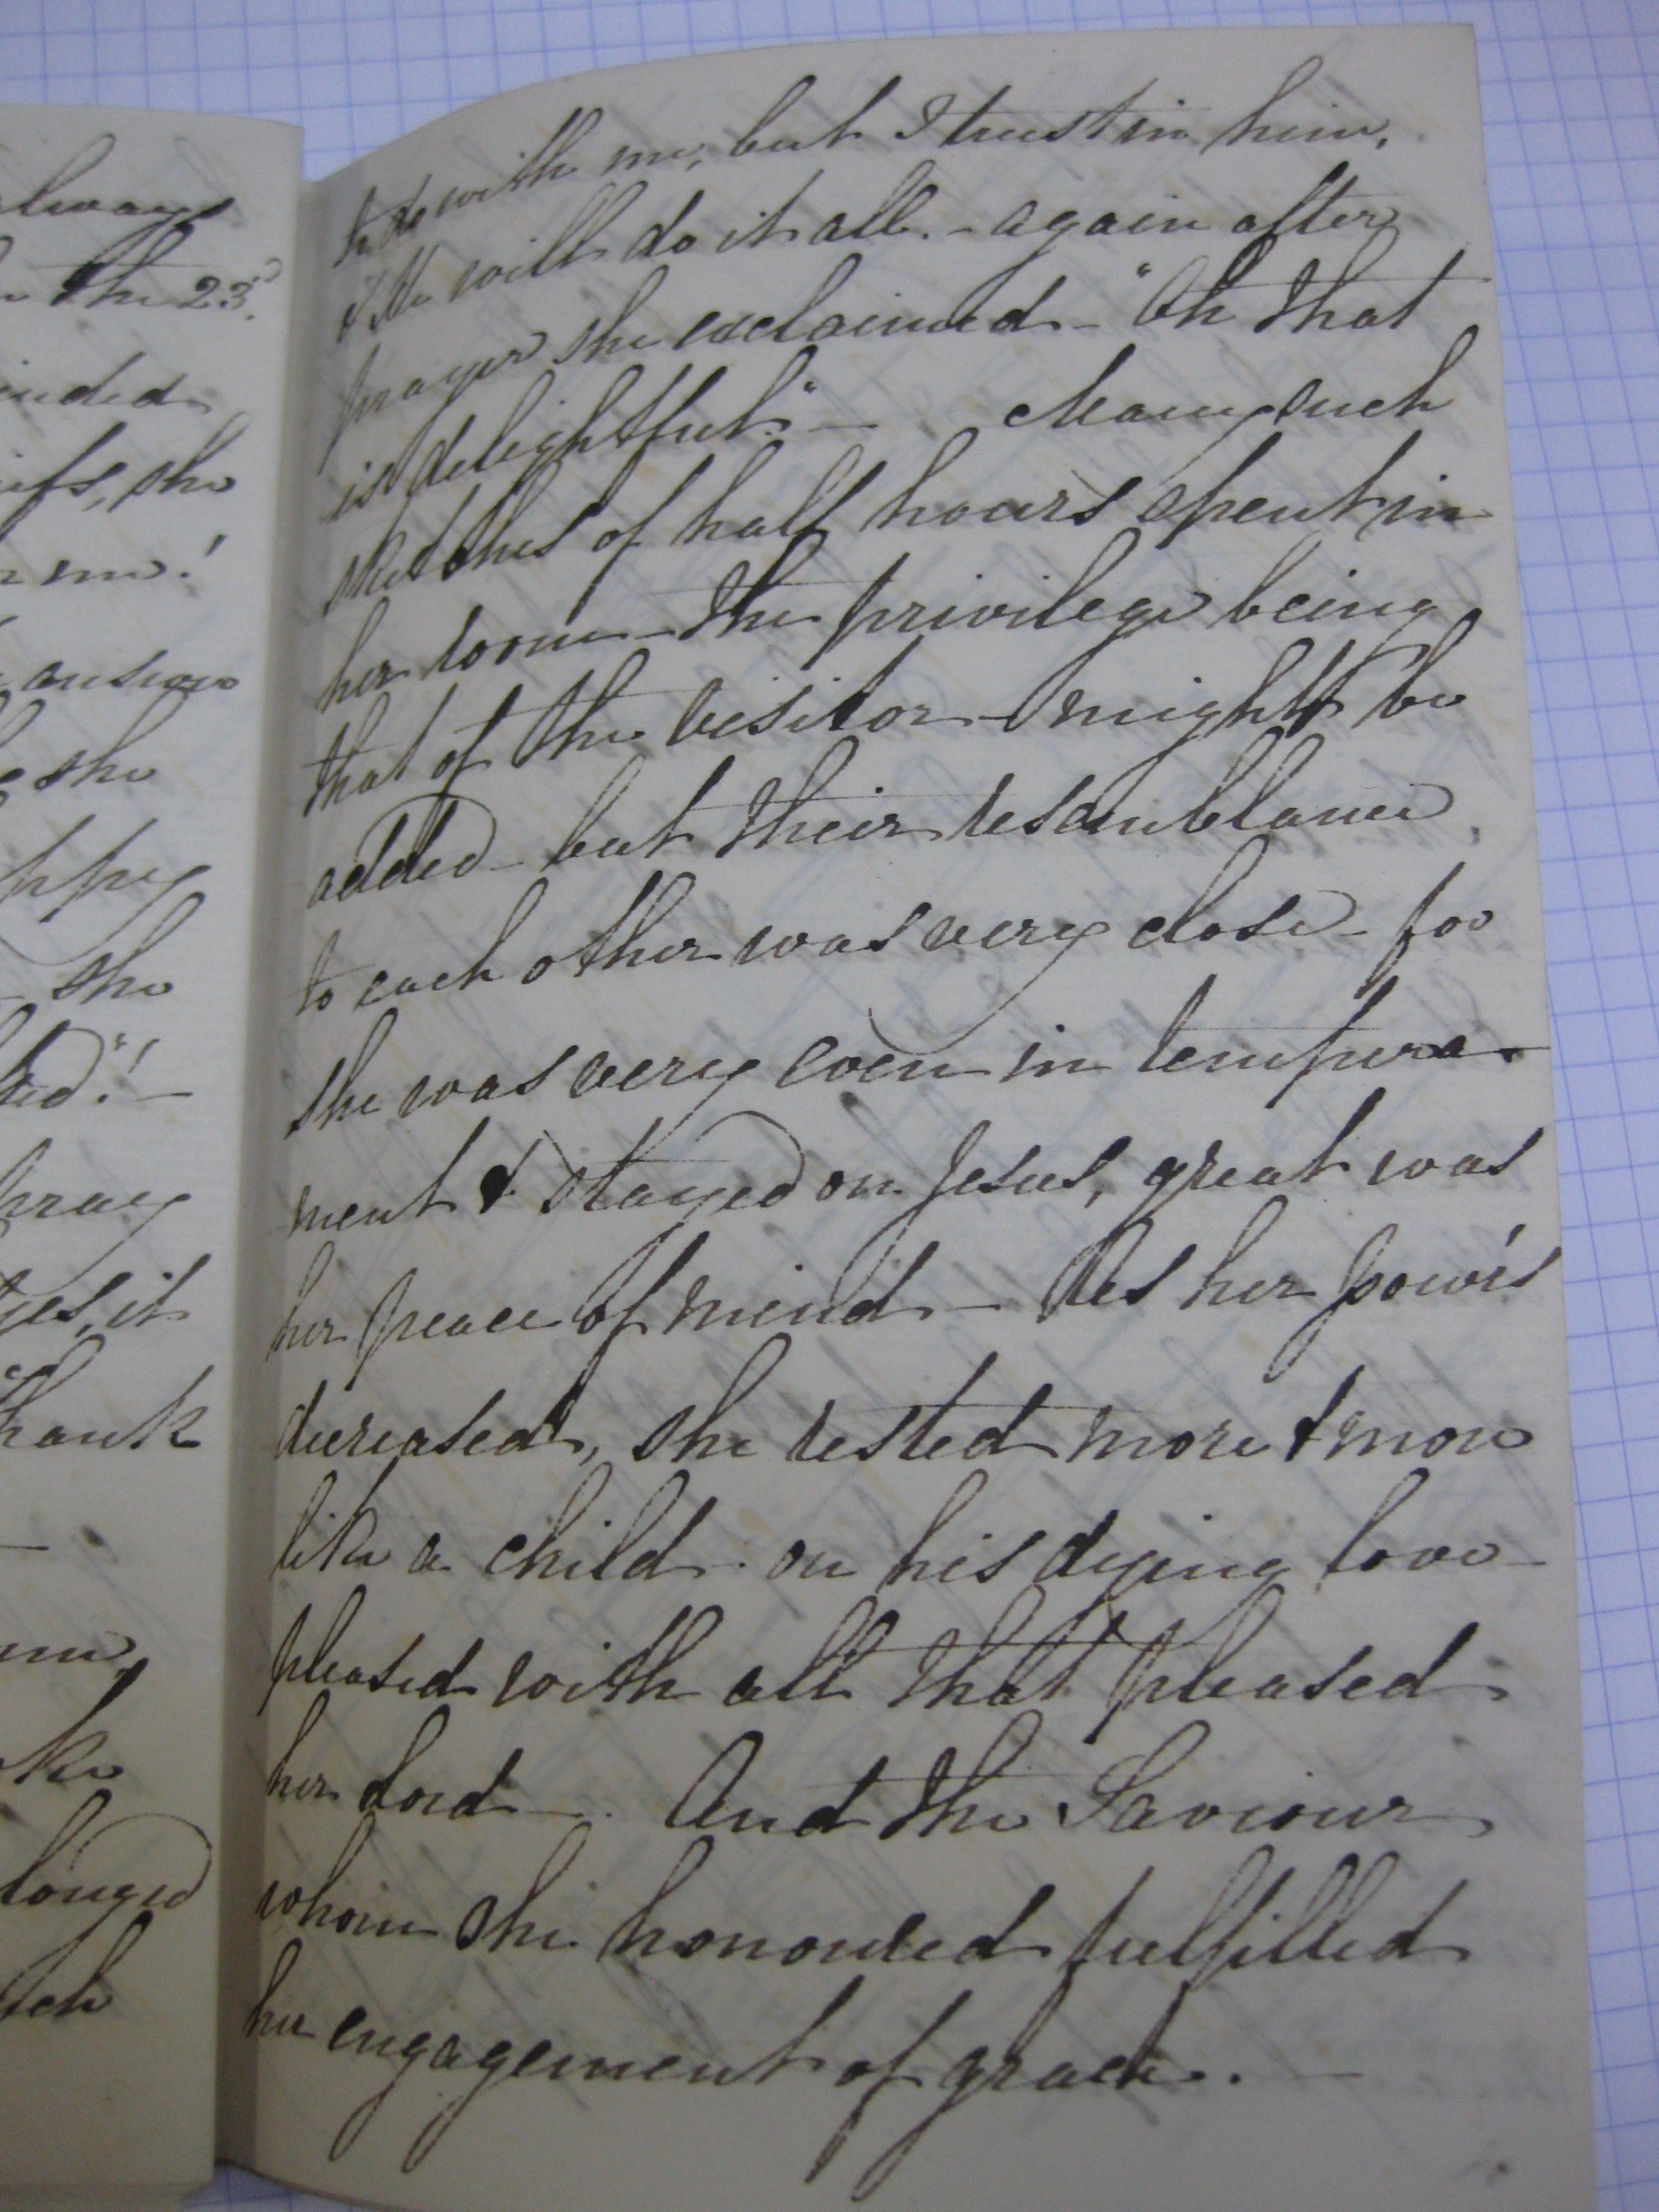 always
the 23.d
she
me!
answer
she
she
pray
yes, it
thank
longed
to do with me, but I trust in him,
& He will do it all. - again after
prayer she exclaimed - "Oh that
is delightful." - Many such
sketches of half hours spent in
her room - the privilege being
that of the visitor - might be
added - but their resemblance
to each other was very close - for
she was very even in tempera-
ment & stayed on Jesus, great was
her peace of mind - As her pow'rs
decreased, she rested more & more
like a child - on his dying love -
pleased with all that pleased
her Lord - . And the Saviour
whom she honoured fulfilled
her engagement of grace. -